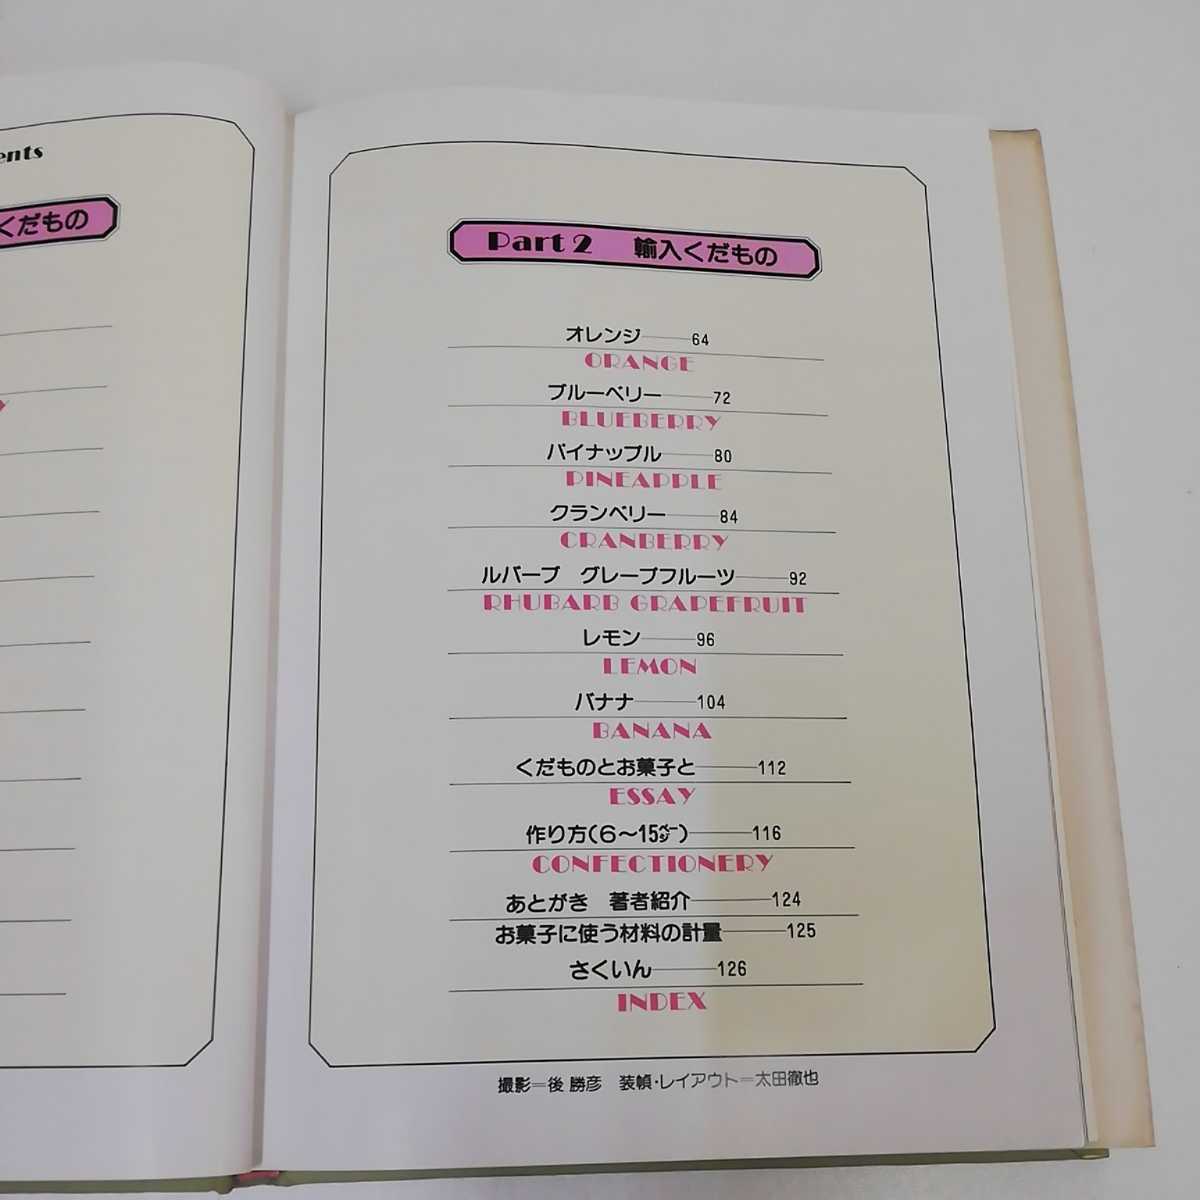 ents
くだもの
Part 2 輸入くだもの
オレンジ――64
ORANGE
ブルーベリー――72
BLUEBERRY
パイナップル――80
PINEAPPLE
クランベリー――84
CRANBERRY
ルバーブ グレープフルーツ――92
RHUBARB GRAPEFRUIT
レモン――96
LEMON
バナナ――104
BANANA
くだものとお菓子と――112
ESSAY
作り方(6〜15㌻)――116
CONFECTIONERY
あとがき 著者紹介――124
お菓子に使う材料の計量――125
さくいん――126
INDEX
撮影=後 勝彦 装幀・レイアウト=太田徹也